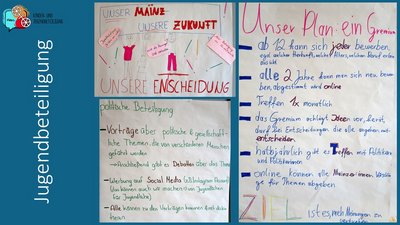 KINDER- UND
Jugendbeteiligung
UNSER MAINZ
UNSERE ZUKUNFT
UNSERE ENTSCHEIDUNG
politische Beteiligung
Vorträge über politische & gesellschaft-
liche Themen, die von verschiedenen Menschen
geführt werden
Anschließend gibt es Debatten über das Thema
Werbung auf Social Media
können auch wir machen
für Jugendliche)
Alle können zu den Vorträgen kommen
Unser Plan: ein Gremium
ab 12 kann sich jeder bewerben,
egal welcher
alle 2 Jahre kann man sich neu bewer-
ben, abgestimmt wird online
Treffen 1x monatlich
das Gremium schlägt Ideen vor, berät,
darf bei Entscheidungen die alle angehen mit-
entscheiden
halbjährlich gibt es Treffen mit Politikern
und Politikerinnen
online können alle Mainzer:innen Vorschlä-
ge für Themen abgeben
ZIEL ist es, mehr Meinungen zu
vertreten